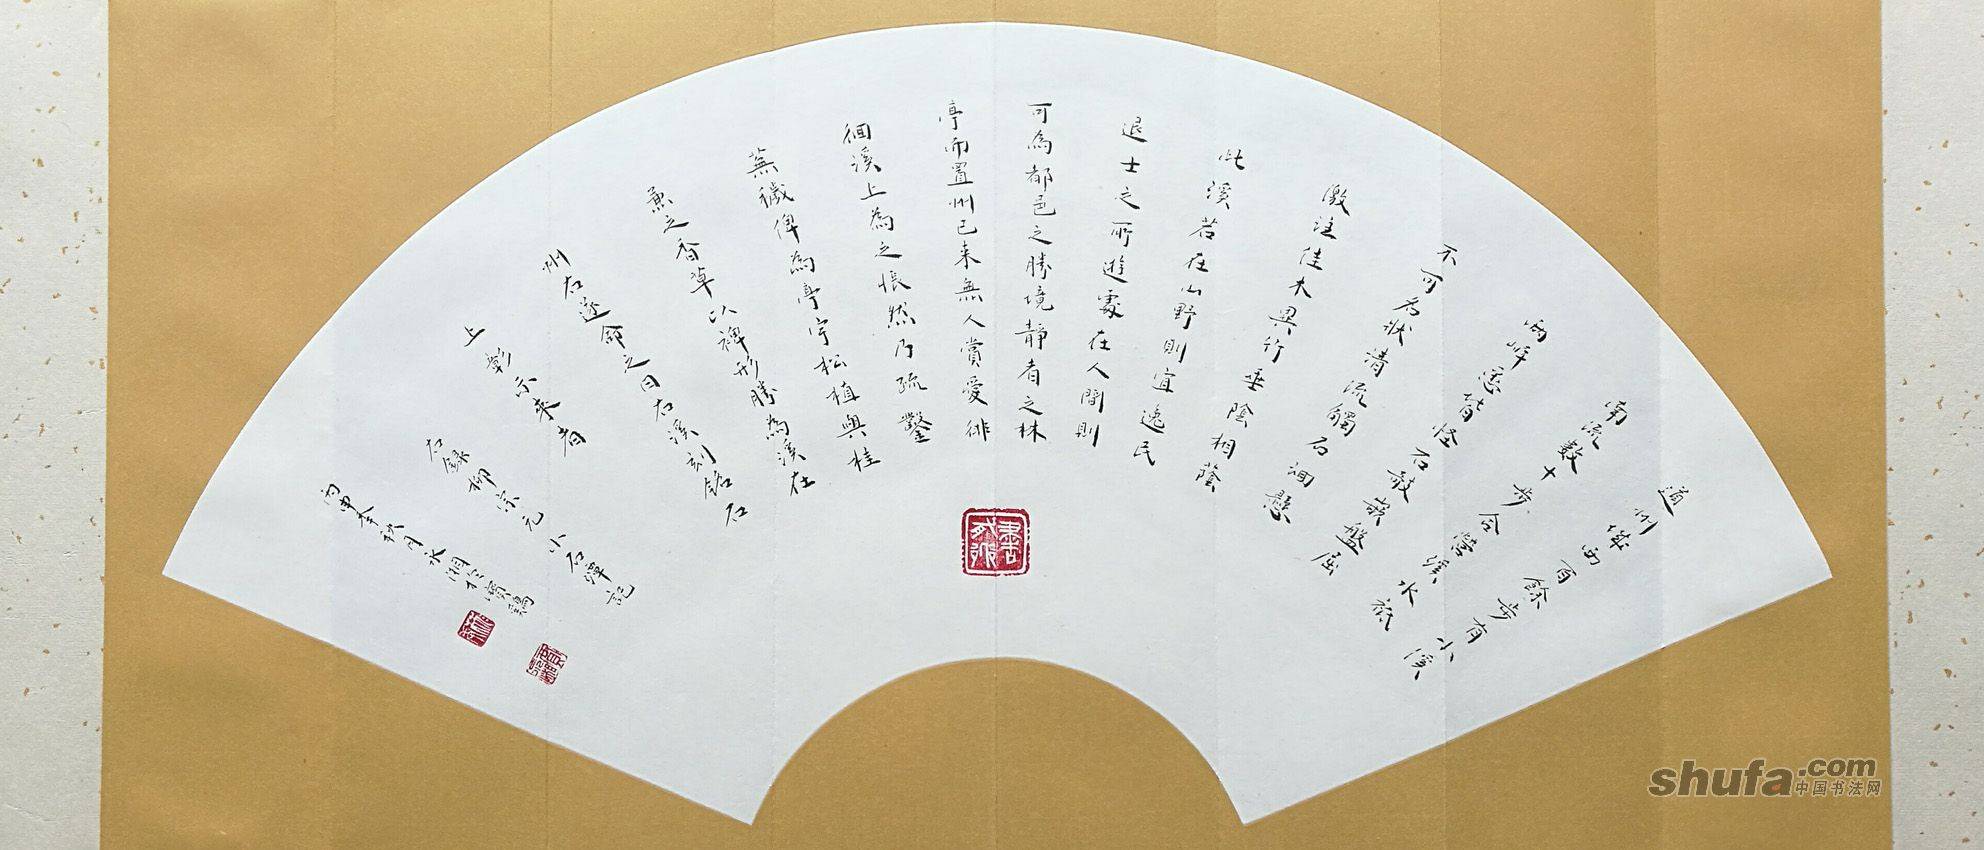 道州城西百餘步有小溪
南流數十步合營溪水抵
兩岸悉皆怪石欹嵌盤屈
不可名狀清流觸石洄懸
激注佳木異竹垂陰相蔭
此溪若在山野則宜逸民
退士之所遊處在人間則
可為都邑之勝境靜者之林
亭而置州已來無人賞愛徘
徊溪上為之悵然乃疏鑿
蕪穢俾為亭宇松植與桂
兼之香草以裨形勝為溪在
州右遂命之曰右溪刻銘石
上彰示來者
右録柳宗元小石潭記
丙申年秋月永湘於寶鷄
shufa.com
中国书法网